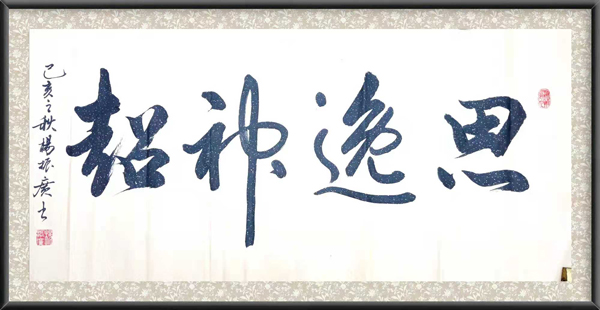 思逸神超
己亥之秋楊振廣书